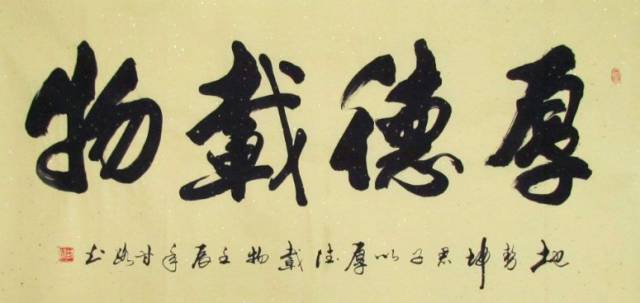 厚德載物
地勢坤君子以厚德載物壬辰年